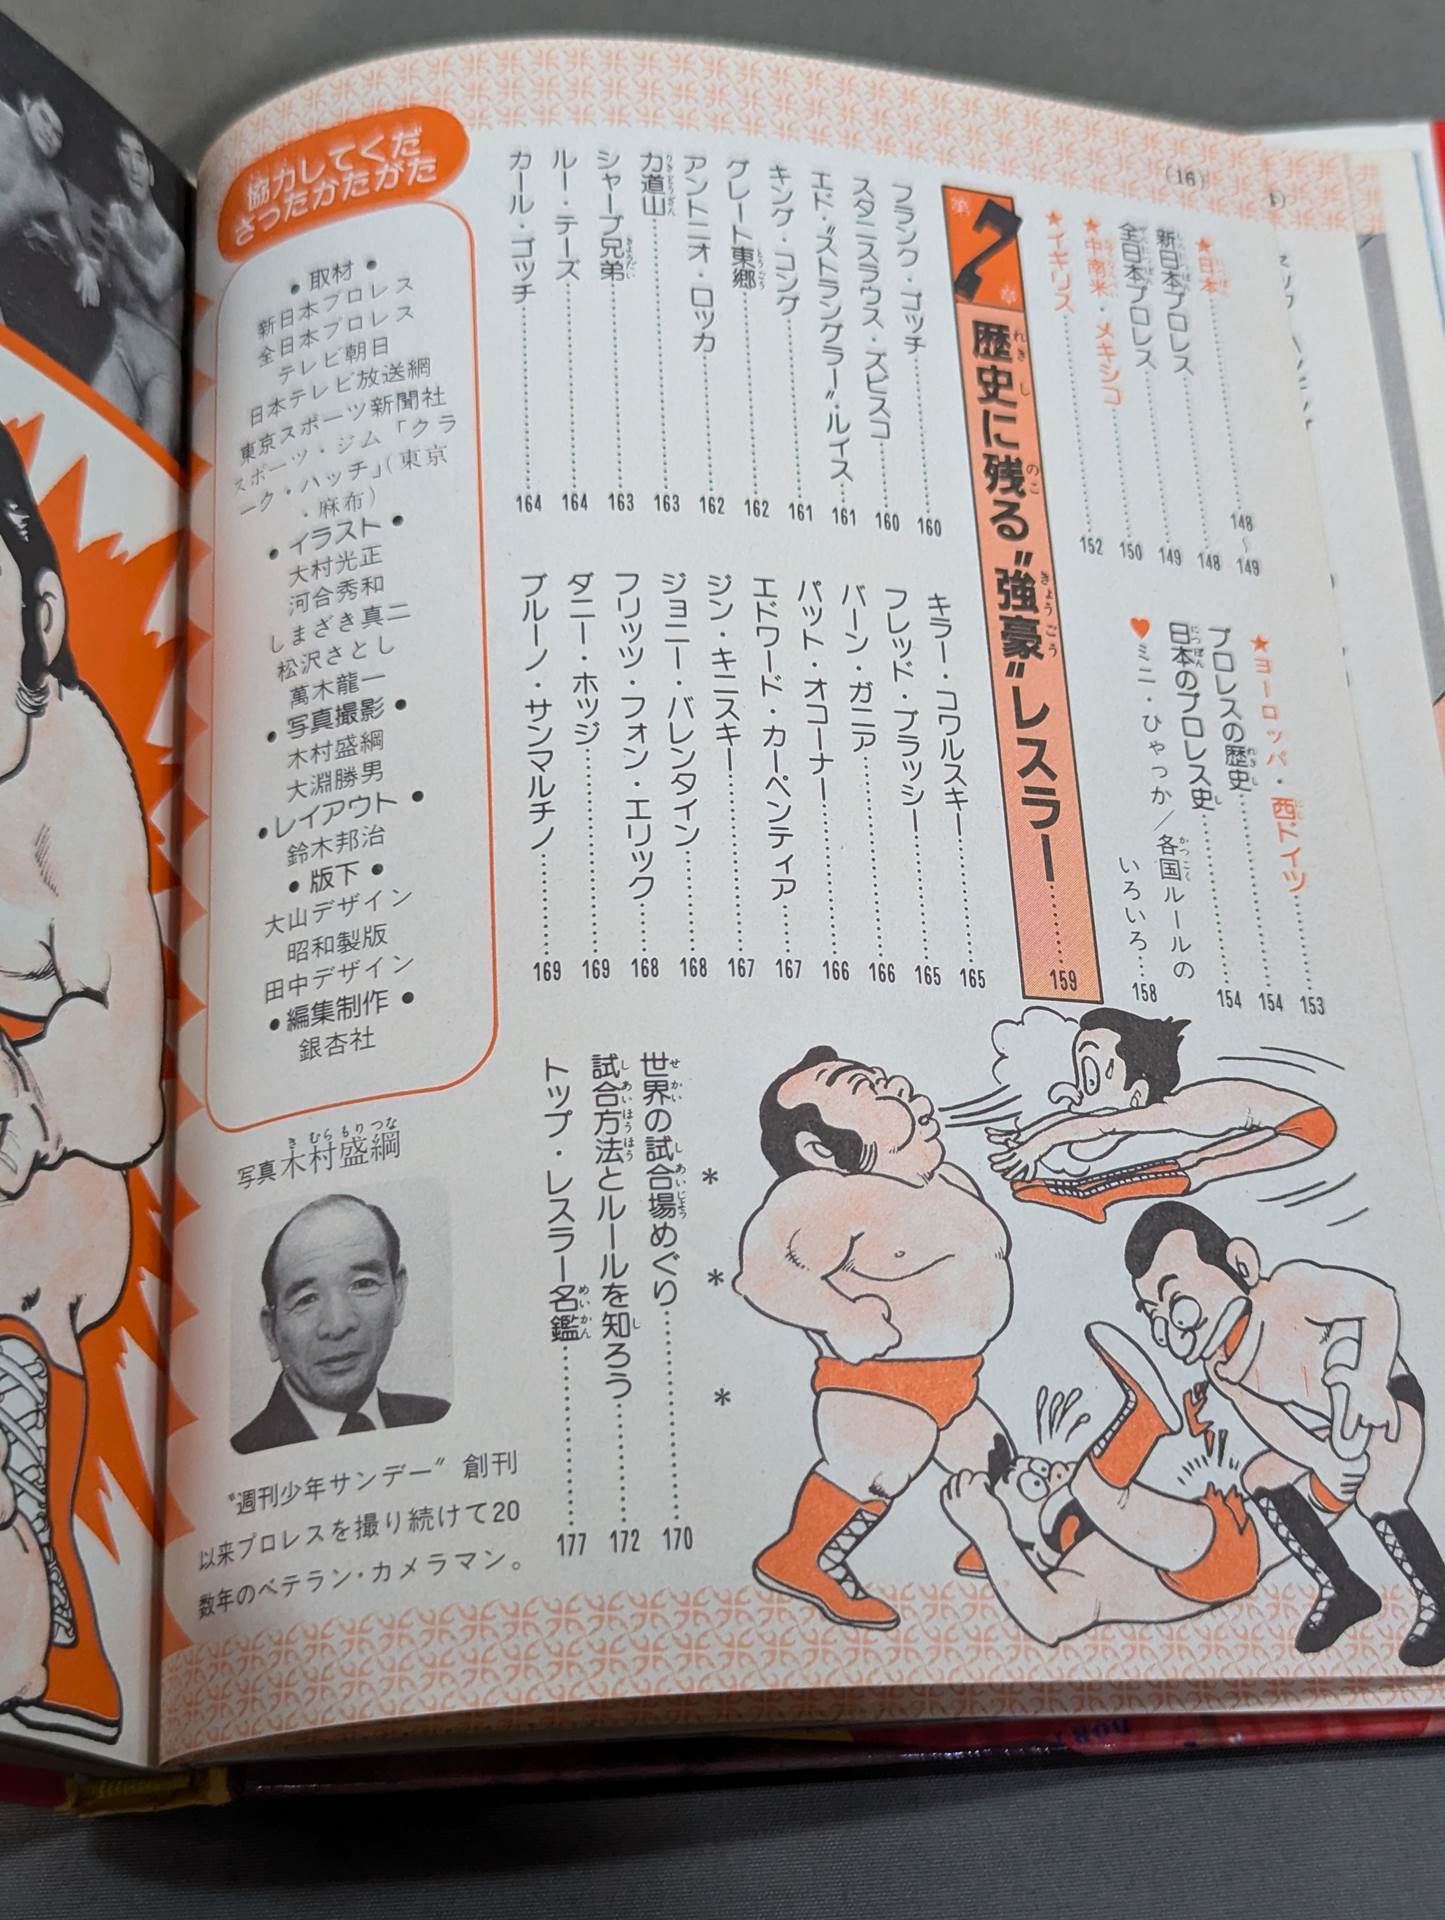 (16)
★日本……148〜149
新日本プロレス……148
全日本プロレス……149
★中南米・メキシコ……150
★イギリス……152
★ヨーロッパ・西ドイツ……153
プロレスの歴史……154
日本のプロレス史……154
♥ミニ・ひゃっか/各国ルールの
いろいろ…158
第7章 歴史に残る〝強豪〟レスラー……159
フランク・ゴッチ……160
スタニスラウス・ズビスコ……160
エド・〝ストラングラー〟・ルイス……161
キング・コング……161
グレート東郷……162
アントニオ・ロッカ……162
力道山……163
シャープ兄弟……163
ルー・テーズ……164
カール・ゴッチ……164
キラー・コワルスキー……165
フレッド・ブラッシー……165
バーン・ガニア……166
パット・オコーナー……166
エドワード・カーペンティア……167
ジン・キニスキー……167
ジョニー・バレンタイン……168
フリッツ・フォン・エリック……168
ダニー・ホッジ……169
ブルーノ・サンマルチノ……169
＊ ＊ ＊
世界の試合場めぐり……170
試合方法とルールを知ろう……172
トップ・レスラー名鑑……177
ビビ
協力してくだ
さったかたがた
●取材●
新日本プロレス
全日本プロレス
テレビ朝日
日本テレビ放送網
東京スポーツ新聞社
スポーツ・ジム「クラ
ーク・ハッチ」(東京
・麻布)
●イラスト●
大村光正
河合秀和
しまざき真二
松沢さとし
萬木龍一
●写真撮影●
木村盛綱
大淵勝男
●レイアウト●
鈴木邦治
●版下●
大山デザイン
昭和製版
田中デザイン
●編集制作●
銀杏社
写真 木村盛綱
〝週刊少年サンデー〟創刊
以来プロレスを撮り続けて20
数年のベテラン・カメラマン。